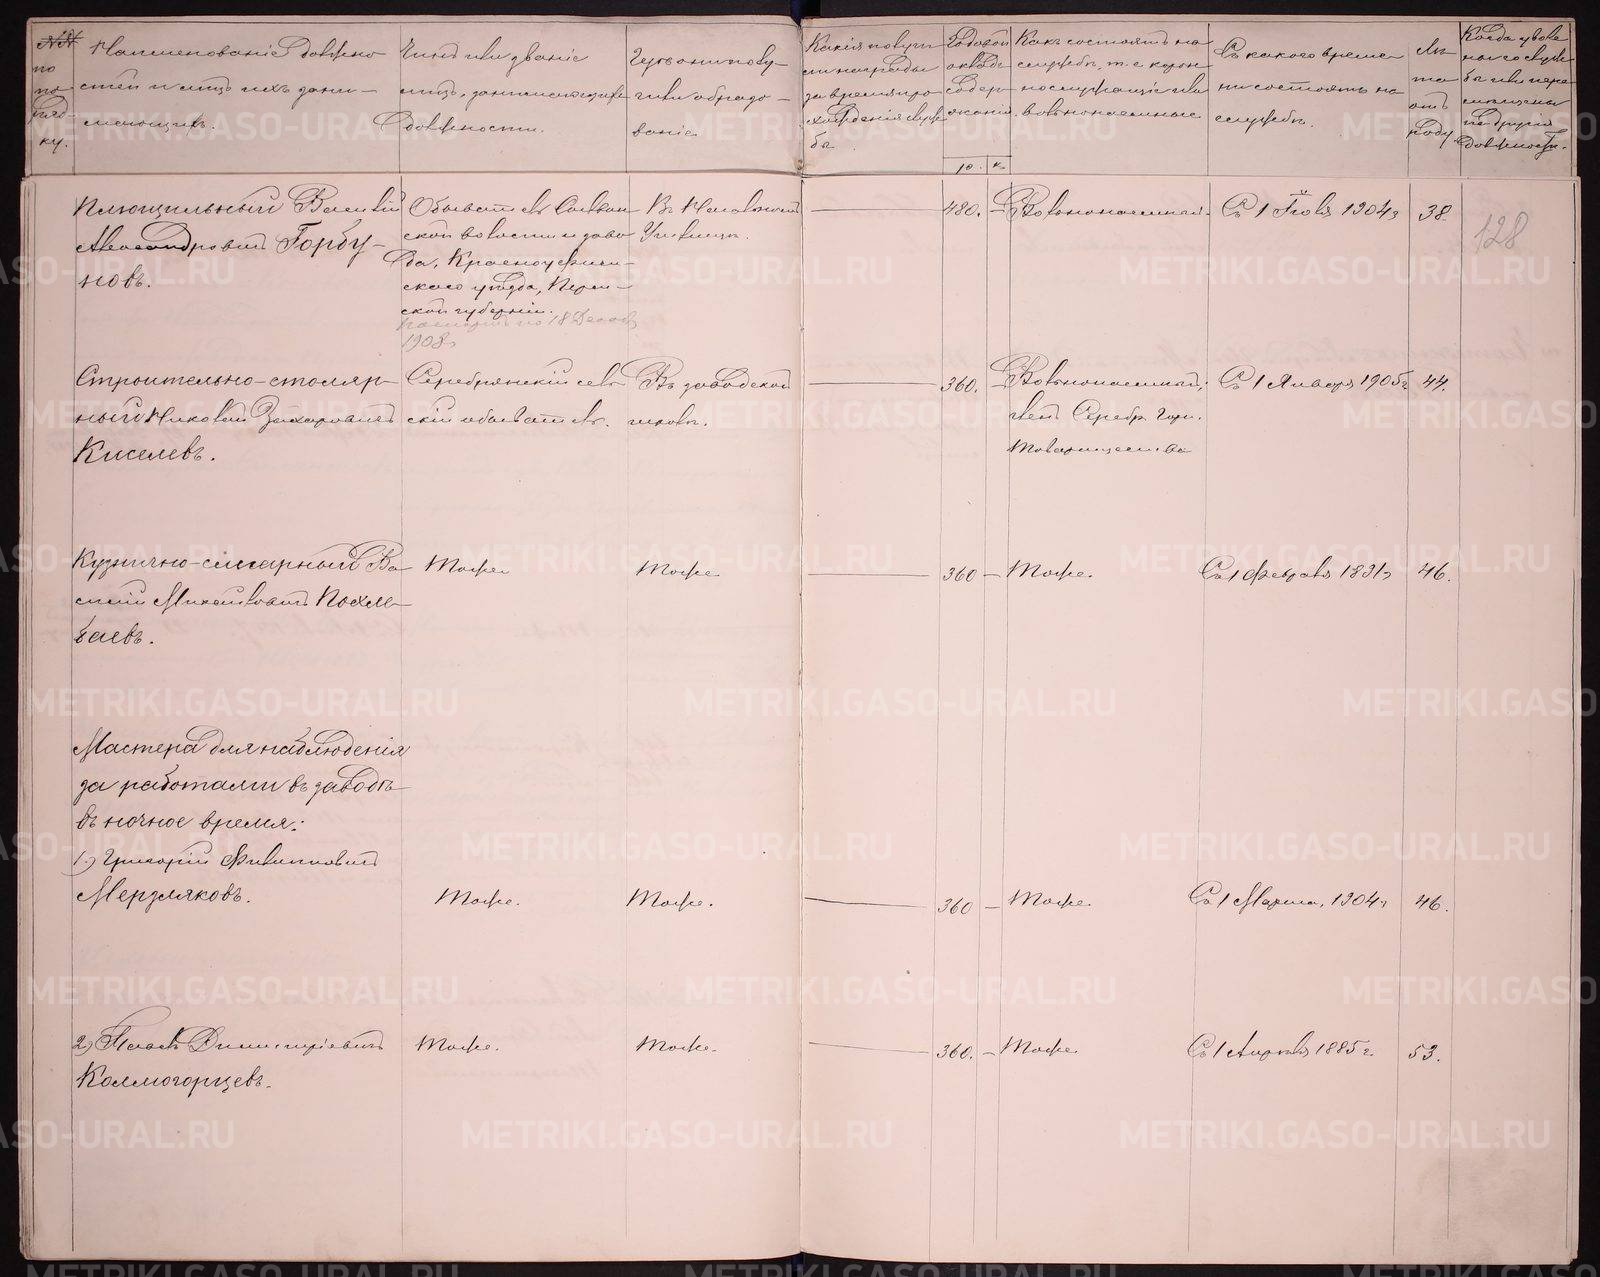 №№ по порядку.
Наименованіе должно-
стей и лицъ ихъ зани-
мающихъ.
Чинъ или званіе
лицъ, занимающихъ
должности.
Гдѣ они полу-
чили образо-
ваніе
Какія получи
ли награды
за время про
хожденія служ
бы
Годовой
окладъ
содер
жанія.
р. к.
Какъ состоятъ на
службѣ, т. е. корон
нослужащіе или
вольнонаемные
Съ какого време-
ни состоятъ на
службѣ.
Лѣ
та
отъ
роду
Когда уволе
ны со служ
бы или пере
мѣщены
на другія
должности.
128
Плющильный Василій
Александровичъ Горбу-
новъ.
Обыватель
ской волости и заво
да, Красноуфим-
скаго уѣзда, Перм-
ской губерніи.
1908г
Въ
Училищѣ.
480. —
Вольнонаемный.
Съ 1 Іюля 1904г
38.
Строительно-столяр-
ный Николай Захаровичъ
Киселевъ.
Серебрянскій сель
скій обыватель.
Въ заводской
школѣ.
360. —
Вольнонаемный,
членъ Серебр. Горн.
Товарищества
Съ 1 Января 1905г
44.
Кузнично-слесарный Ва-
силій Михайловичъ Похле-
баевъ.
Тоже
Тоже
360 —
Тоже.
Съ 1 Февраля 1891г
46.
Мастера для наблюденія
за работами въ заводѣ
въ ночное время:
1.) Григорій Филипповичъ
Мерзляковъ.
Тоже.
Тоже.
360 —
Тоже.
Съ 1 Марта, 1904г
46.
2) Павелъ Дмитріевичъ
Колмогорцевъ.
Тоже.
Тоже.
360. —
Тоже.
Съ 1 Апрѣля 1885г.
53.
METRIKI.GASO-URAL.RU